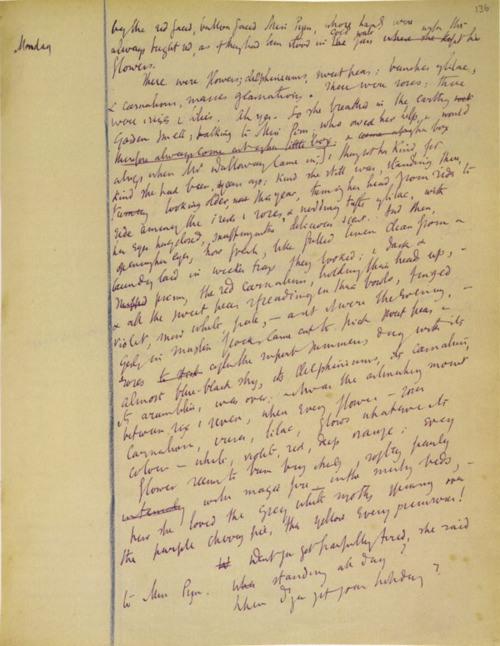 136
Monday
by the red faced, button faced Miss Pym, whose hands were
always bright red, as if they had been stood in cold water with the
flowers.
There were flowers; delphiniums, sweet peas; bunches of lilac,
& carnations, masses of carnations. There were roses: there
were irises & lilies. Ah yes. So she breathed in the earthy
garden smell, talking to Miss Pym, who owed her help, & would
therefore always come out of her little box.
always, when Mrs Dalloway came in; & thought her kind, for
kind she had been, years ago; kind she still was, standing there,
looking older, this year, turning her head from side to
side among the irises & roses, & nodding tufts of lilac, with
her eyes half closed, snuffing the delicious scent. And then,
opening her eyes, how fresh, like frilled linen clean from a
laundry laid in wicker trays they looked; & dark &
prim, the red carnations, holding their heads up, -
& all the sweet peas spreading in their bowls, tinged
violet, snow white, pale, - as it were the evening, -
girls in muslin frocks came out to pick sweet peas, &
roses after the superb summers day with its
almost blue-black sky, its delphiniums, its carnations,
its was over; it was the moment
between six & seven, when every flower - roses
carnations, irises, lilac, glows whatever its
colour - white, violet, red, deep orange: every
flower seems to burn by itself, softly, purely
in the misty beds, -
how she loved the grey white moths spinning over
the purple cherry pie, the yellow evening primroses!
Don't you get frightfully tired, she said
to Miss Pym. standing all day?
When d'you get your holiday?